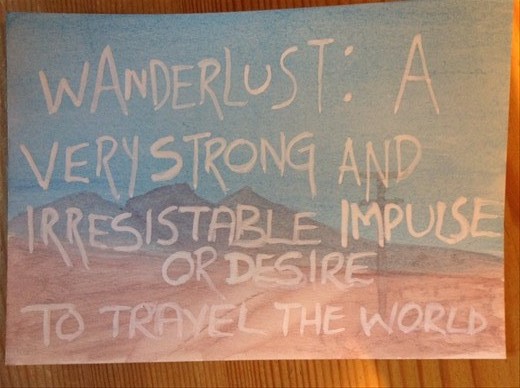 WANDERLUST: A
VERY STRONG AND
IRRESISTABLE IMPULSE
OR DESIRE
TO TRAVEL THE WORLD